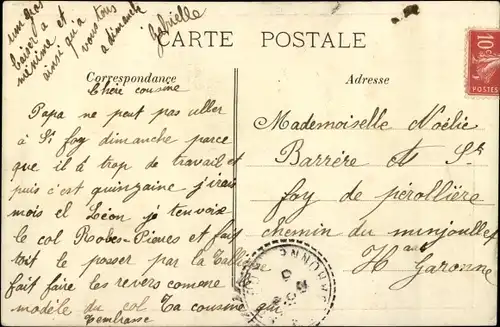 un gros
baiser a
mémine et
ainsi qu'a
vous tous
a dimanche
Gabrielle
CARTE POSTALE
Correspondance
Chére cousine
Papa ne peut pas aller
à St foy dimanche parce
que il à trop de travail et
puis c'est quinzaine j'irai
mois el Léon je t'envoie
le col et fait
toit le posser par la
fait faire les revers comme
modéle du col Ta cousine qui
t'embrasse
Adresse
Mademoiselle Noélie
Barrére St
foy de pérollière
chemin du
Hau Garonne
10c
POSTES